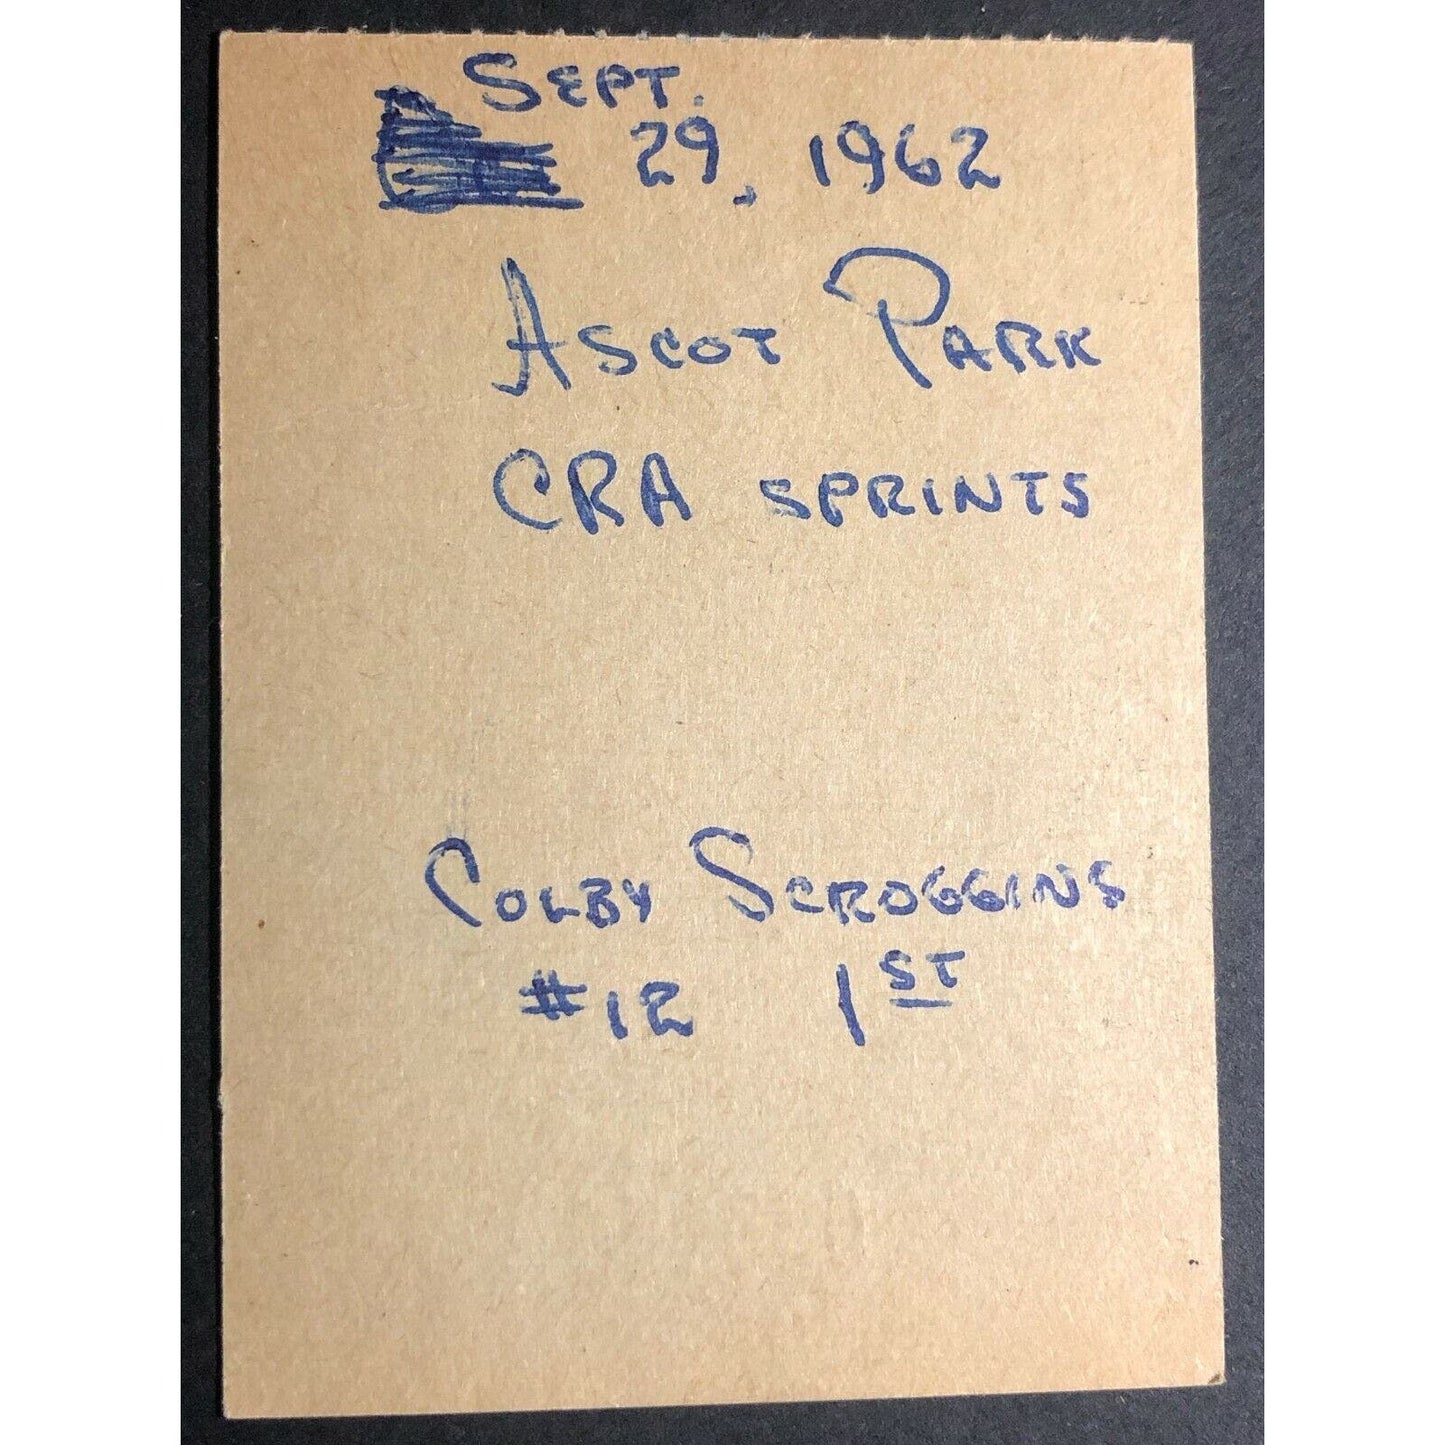 SEPT.
29, 1962
ASCOT PARK
CRA SPRINTS
COLBY SCROGGINS
#12 1ST